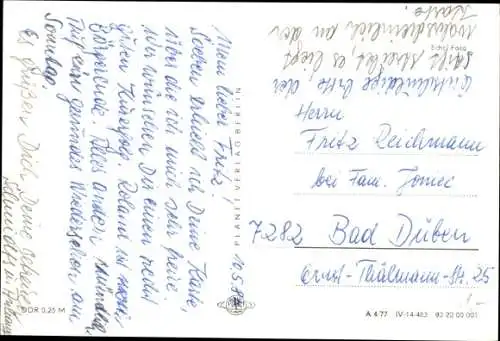 10.5.8
Mein lieber Fritz!
Soeben erhielt ich Deine Karte,
über die ich mich sehr freue.
Wir wünschen Dir einen recht
guten Kurerfolg. Roland ist
Alles andere mündlich
Auf ein gesundes Wiedersehen am
Sonntag.
Es grüßen Dich Deine
Entschuldige bitte der
es liegt
wahrscheinlich an der
Karte.
Echt Foto
Herrn
Fritz Reichmann
bei Fam.
7282 Bad Düben
Ernst-Thälmann-Str. 25
1,-
PLANET-VERLAG BERLIN
DDR 0,25 M
A 4/77 IV-14-483 02 22 00 001